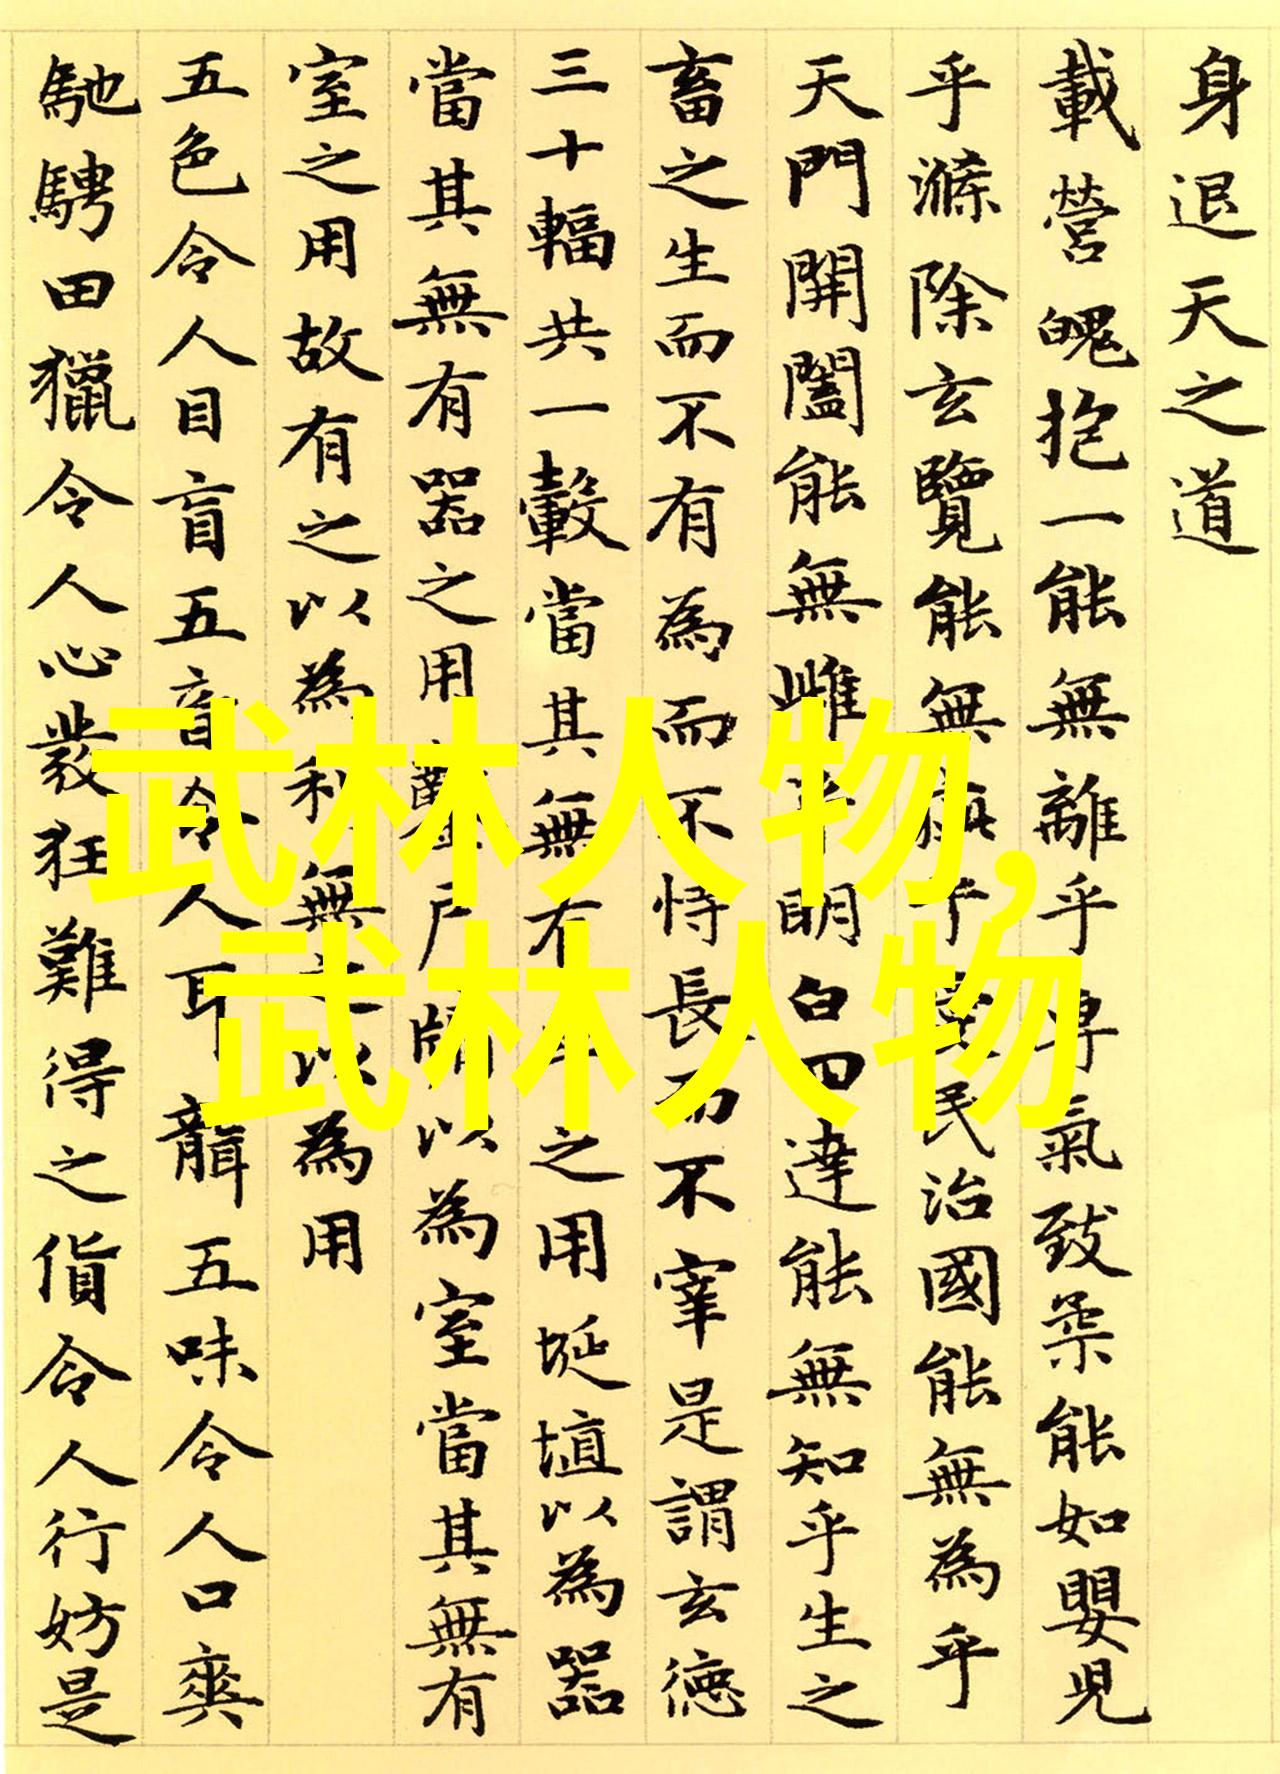 身退天之道
載營魄抱一能無離乎專氣致柔能如嬰兒
乎滌除玄覽能無疵乎愛民治國能無為乎
天門開闔能無雌乎明白四達能無知乎生之
畜之生而不有為而不恃長而不宰是謂玄德
三十輻共一轂當其無有車之用埏埴以為器
當其無有器之用鑿戶牖以為室當其無有
室之用故有之以為利無之以為用
五色令人目盲五音令人耳聾五味令人口爽
馳騁田獵令人心發狂難得之貨令人行妨是
武林人物,
武林人物